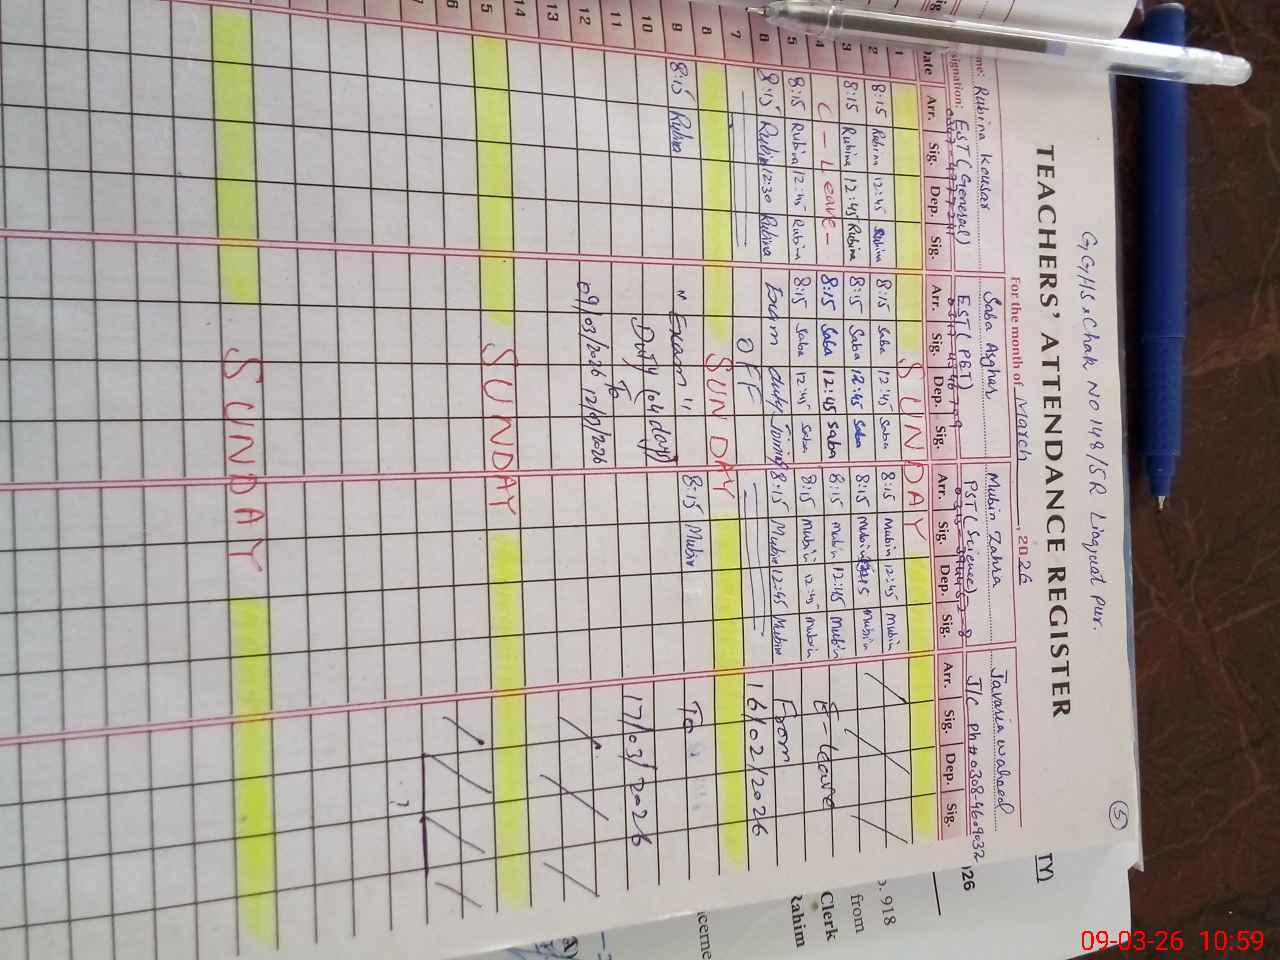 GGHS, Chak No 148/5R Linqual Pur.
5
TEACHERS' ATTENDANCE REGISTER
For the month of March, 2026
me: Rubina Kousar Saba Asghar Mubin Zahra Javaria Waheed
signation: EST (General) EST (PET) PST (Science) J/C Ph# 0308-4609032
Date Arr. Sig. Dep. Sig. Arr. Sig. Dep. Sig. Arr. Sig. Dep. Sig. Arr. Sig. Dep. Sig.
1 SUNDAY
2 8:15 Rubina 12:45 Rubina 8:15 Saba 12:45 Saba 8:15 Mubin 12:45 Mubin
3 8:15 Rubina 12:45 Rubina 8:15 Saba 12:45 Saba 8:15 Mubin Mubin
4 C - Leave - 8:15 Saba 12:45 Saba 8:15 Mubin 12:45 Mubin E-Leave
5 8:15 Rubina 12:45 Rubina 8:15 Saba 12:45 Saba 8:15 Mubin 12:45 Mubin From
6 8:15 Rubina 12:30 Rubina Exam duty Joining 8:15 Mubin 12:45 Mubin 16/02/2026
7 OFF
8 SUNDAY
9 8:15 Rubina "Exam" 8:15 Mubin To
10 Duty (04 days)
11 To 17/03/2026
12 09/03/2026 12/03/2026
13
14
15 SUNDAY
16
17
SUNDAY
TY)
/26
o. 918
from
Clerk
Rahim
cerne
A)
09-03-26 10:59